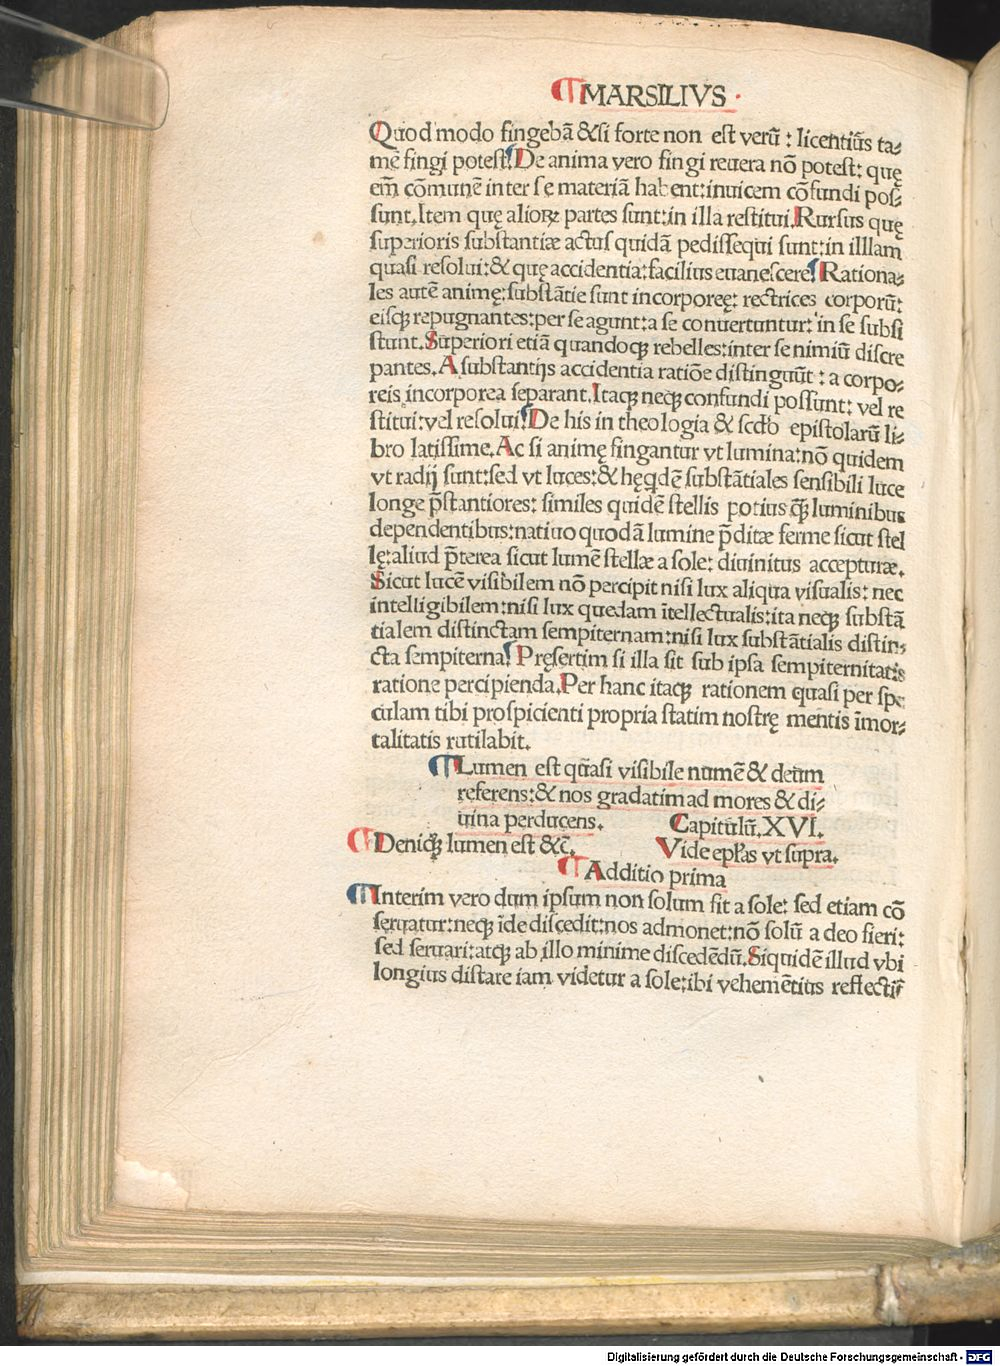 ¶MARSILIVS.
Quod modo fingebã &si forte non est verũ : licentiũs ta⸗
mẽ fingi potest. De anima vero fingi reuera nõ potest: quę
em̃ cõmunẽ inter se materiã habent:inuicem cõfundi pos⸗
sunt. Item quę alioꝝ partes sunt:in illa restitui. Rursus quę
superioris substantiæ actus quidã pedissequi sunt:in illlam
quasi resolui:& quę accidentia:facilius euanescere. Rationa⸗
les autẽ animę:substãtie sunt incorporeę: rectrices corporũ:
eisqꝫ repugnantes:per se agunt:a se conuertuntur: in se subsi
stunt. Superiori etiã quandoqꝫ rebelles:inter se nimiũ discre
pantes. A substantijs accidentia ratiõe distinguũt : a corpo⸗
reis incorporea separant. Itaqꝫ neqꝫ confundi possunt: vel re
stitui:vel resolui. De his in theologia & scdo epistolarũ li⸗
bro latissime. Ac si animę fingantur vt lumina:nõ quidem
vt radij sunt:sed vt luces:& hęqdẽ substãtiales sensibili luce
longe p̃stantiores: similes quidẽ stellis potius q̃ luminibus
dependentibus:natiuo quodã lumine p̃ditæ ferme sicut stel
lę:aliud p̃terea sicut lumẽ stellæ a sole: diuinitus accepturæ.
Sicut lucẽ visibilem nõ percipit nisi lux aliqua visualis: nec
intelligibilem:nisi lux quedam ĩtellectualis:ita neqꝫ substã
tialem distinctam sempiternam:nisi lux substãtialis distin⸗
cta sempiterna. Pręsertim si illa sit sub ipsa sempiternitatis
ratione percipienda. Per hanc itaqꝫ rationem quasi per spe
culam tibi prospicienti propria statim nostrę mentis ĩmor⸗
talitatis rutilabit.
¶Lumen est quasi visibile numẽ & deum
referens:& nos gradatim ad mores & di⸗
uina perducens. Capitulũ. XVI.
¶Deniqꝫ lumen est &c̃. Vide ep̃las vt supra.
¶Additio prima
¶Interim vero dum ipsum non solum fit a sole: sed etiam cõ
seruatur:neqꝫ ĩde discedit:nos admonet:nõ solũ a deo fieri:
sed seruari:atqꝫ ab illo minime discedẽdũ. Siquidẽ illud vbi
longius distare iam videtur a sole:ibi vehemẽtius reflectit̃
Digitalisierung gefördert durch die Deutsche Forschungsgemeinschaft - DFG